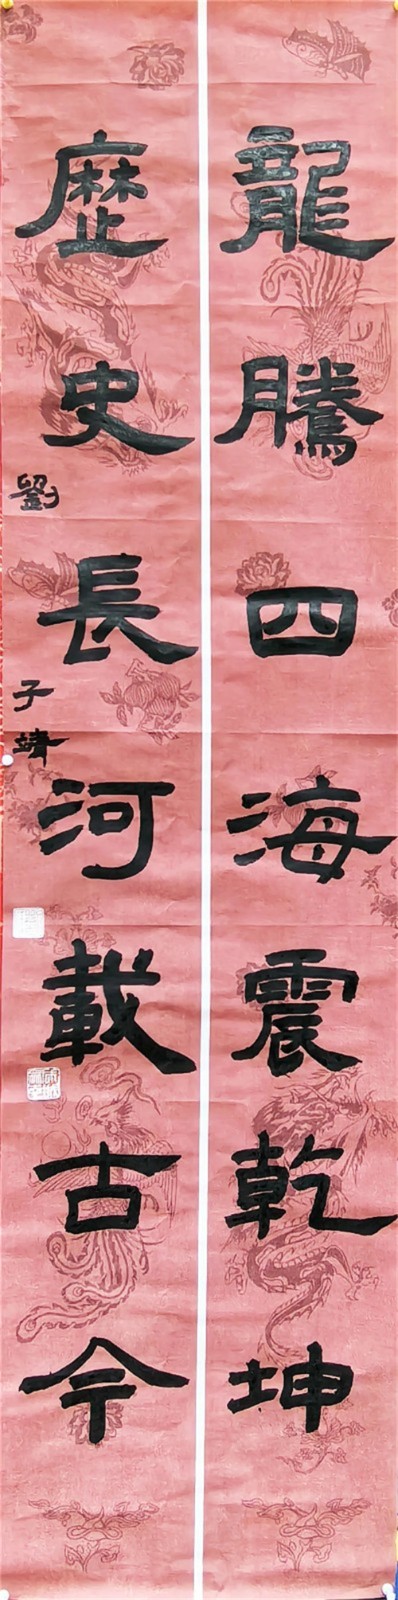 龍騰四海震乾坤
歷史長河載古今
劉子靖